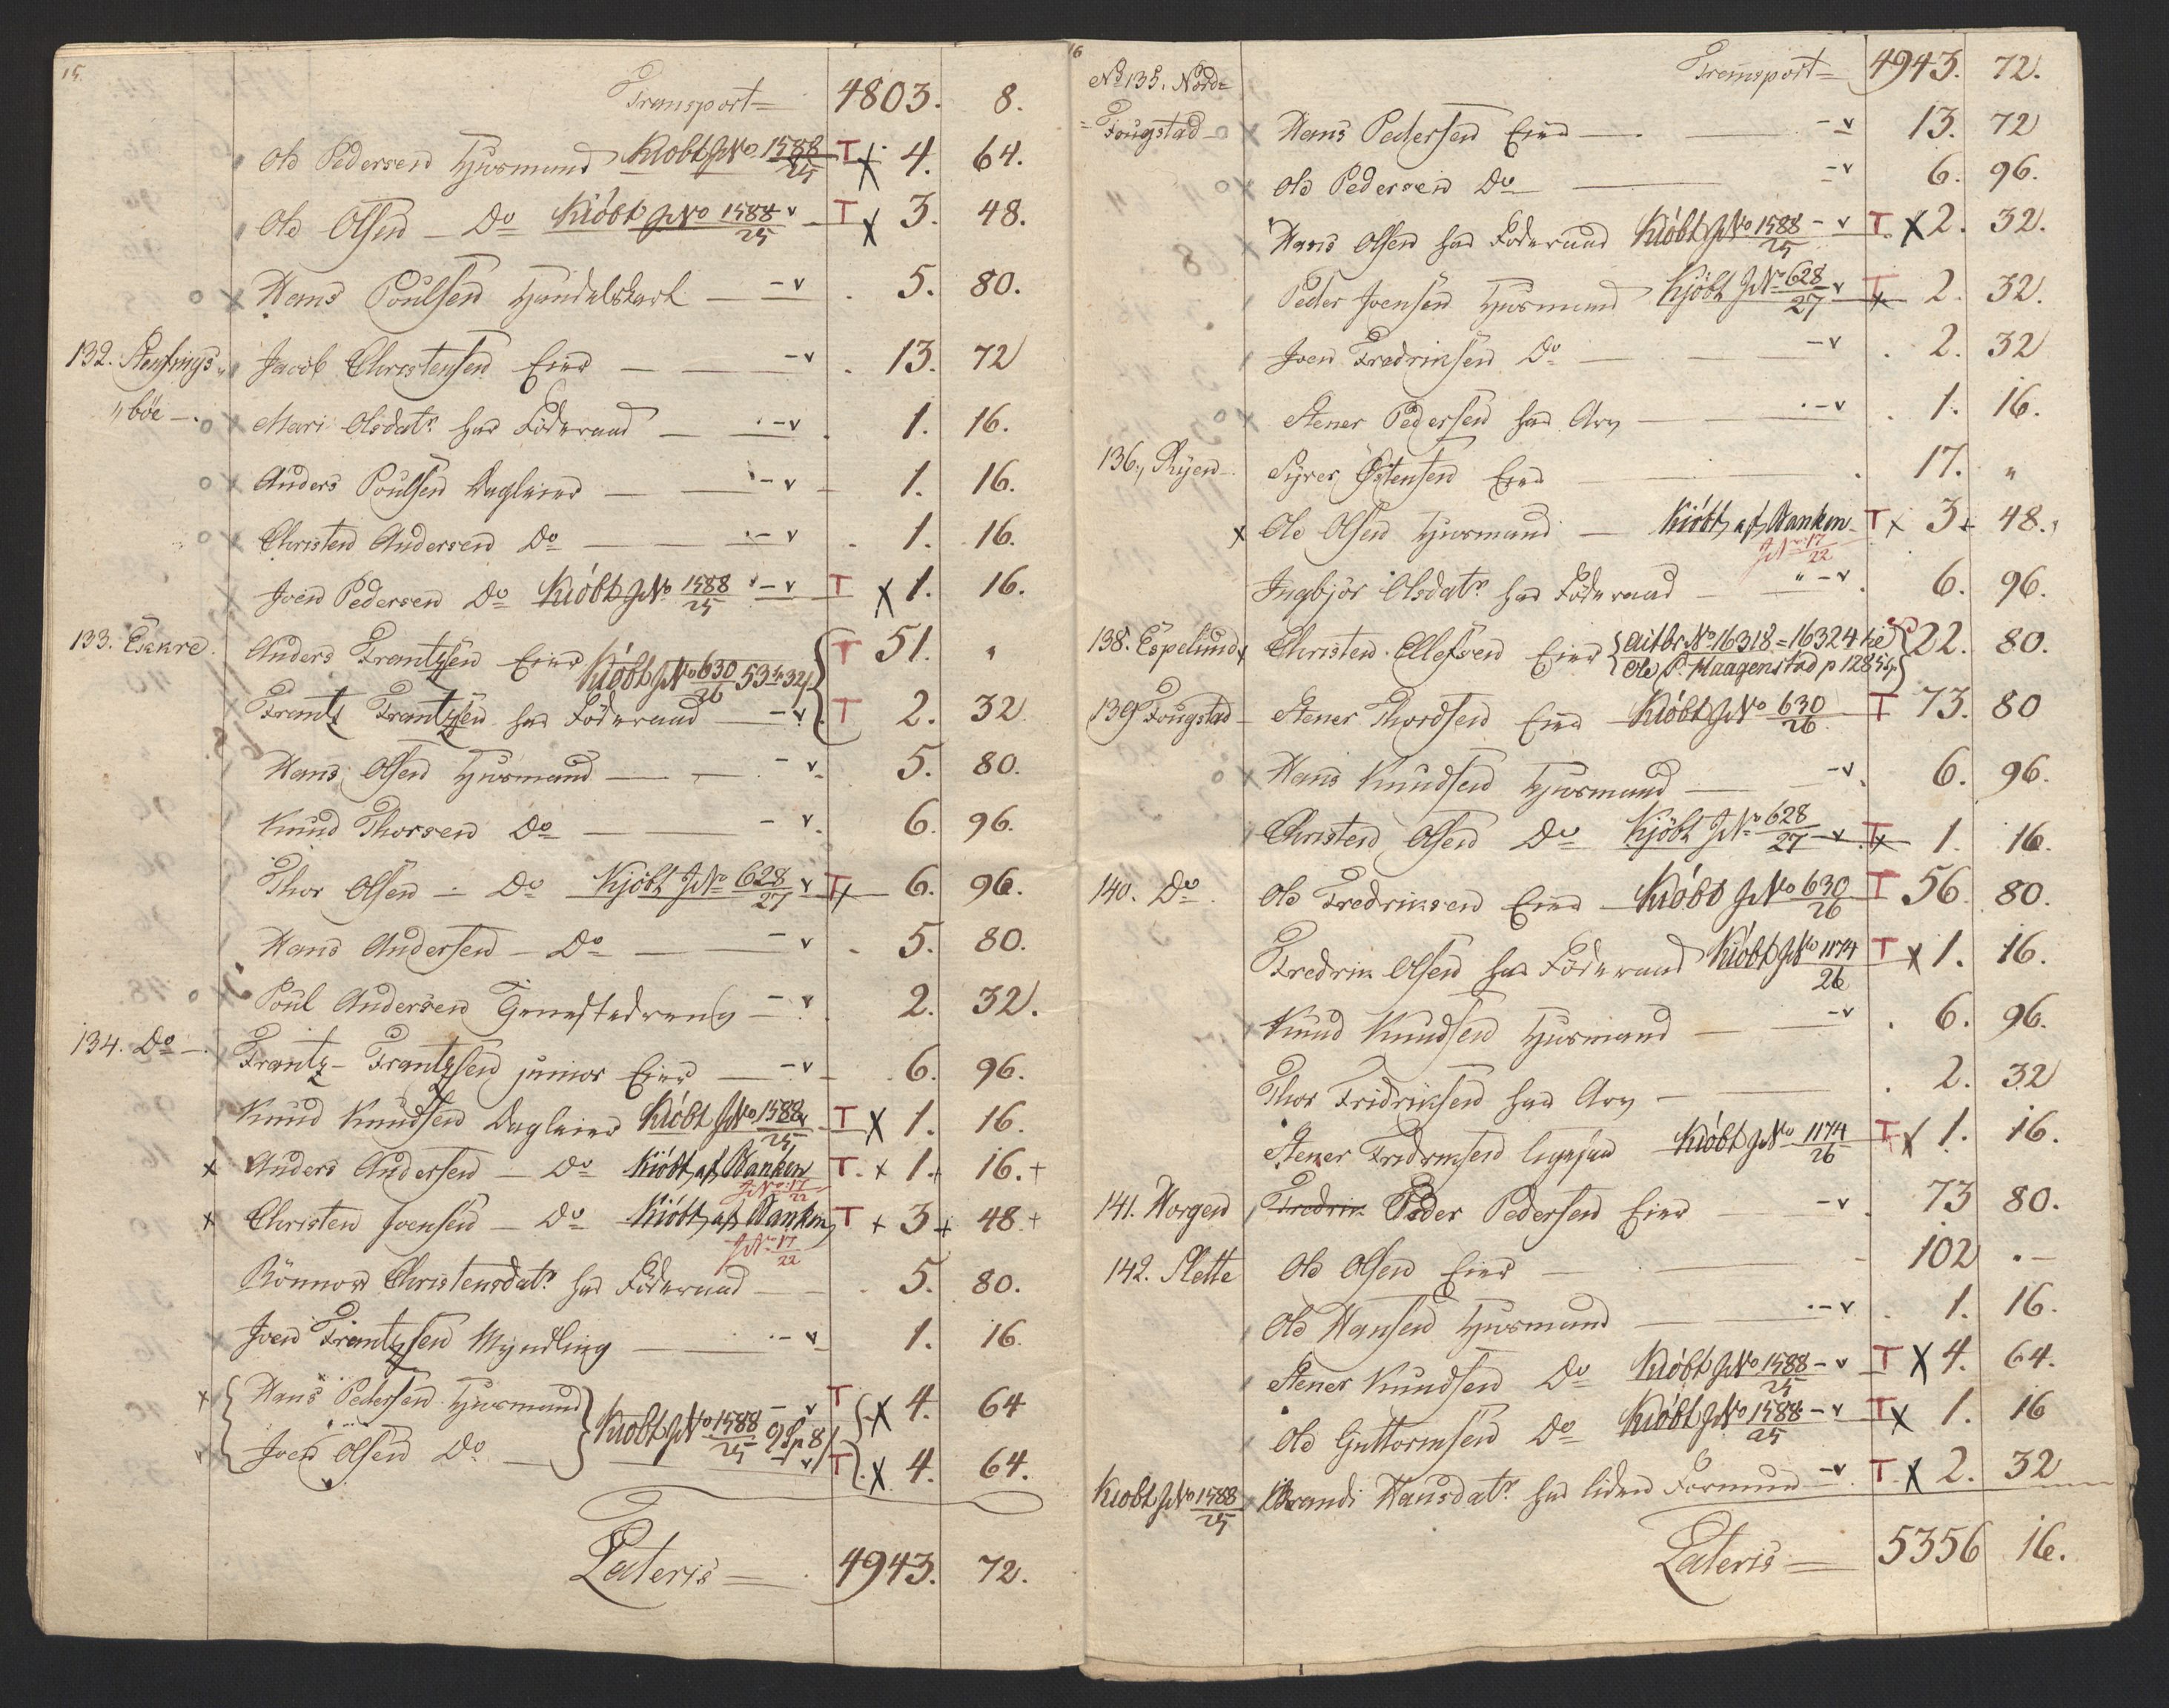 15.
Transport= 4803. 8.
Ole Pedersen Huusmand Kiöbt JNo 1588/25 T X 4. 64.
Ole Olsen – Do Kiöbt JNo 1588/25 T X 3. 48.
Hans Poulsen Handelskarl 5. 80.
132. Jacob Christensen Eier 13. 72
böe Mari Olsdatr har Föderaad 1. 16.
Anders Poulsen Dagleier 1. 16.
Christen Andersen Do 1. 16.
Joen Pedersen Do Kiöbt JNo 1588/25 T X 1. 16.
133. Eskre. Anders Frantzsen Eier T 51. "
Kiöbt JNo 630/26 53 32
Frantz Frantzsen har Föderaad T 2. 32
Hans Olsen Huusmand 5. 80.
Knud Thorsen Do 6. 96.
Thor Olsen – Do Kjöbt JNo 628/27 T X 6. 96.
Hans Andersen – Do 5. 80.
Poul Andersen 2. 32.
134. Do Frantz Frantzsen junior Eier 6. 96.
Knud Knudsen Dagleier Kiöbt JNo 1588/25 T X 1. 16.
x Anders Andersen – Do Kiöbt af Banken T. x 1 + 16. +
JNo 17/22
x Christen Joensen – Do Kiöbt af Banken T + 3 + 48 +
JNo 17/22
Rönnow Christensdatr har Föderaad 5. 80.
Joen Frantzsen Myndling 1. 16.
Hans Pedersen Huusmand T X 4. 64
Kiöbt JNo 1588/25
Joen Olsen Do T X 4. 64.
Lateris = 4943. 72.
16
No 135. Nord= Transport= 4943. 72.
=Fougstad Hans Pedersen Eier 13. 72
Ole Pedersen Do 6. 96.
Hans Olsen har Föderaad Kiöbt JNo 1588/25 T. X 2. 32.
Peder Joensen Huusmand Kjöbt JNo 628/27 T x 2. 32.
Joen Fredriksen Do 2. 32
Stener Pedersen har Arv 1. 16.
136. Ryen Syver Östensen Eier 17. "
x Ole Olsen Huusmand – Kiöbt af Banken T x 3 + 48.
JNo 17/22
Ingbjör Olsdatr har Föderaad 6. 96.
138. Espelund Christen Ellefsen Eier No 16318 = 16324 22. 80.
Ole P. Haagenstad p 128
139 Fougstad Stener Thordsen Eier Kiöbt JNo 630/26 T 73. 80
Hans Knudsen Huusmand 6. 96.
Christen Olsen Do Kjöbt JNo 628/27 T x 1. 16.
140. Do Ole Fredriksen Eier Kiöbt JNo 630/26 T 56. 80.
Fredrik Olsen har Föderaad Kiöbt JNo 1174/26 T X 1. 16.
Knud Knudsen Huusmand 6. 96.
Thor Fridriksen har Arv 2. 32
Stener Fridriksen Kiöbt JNo 1174/26 T X 1. 16.
141. Horgen Fredrik Peder Pedersen Eier 73 80.
142. Slette Ole Olsen Eier 102 . –
Ole Hansen Huusmand 1. 16.
Stener Knudsen Do Kiöbt JNo 1588/25 T X 4. 64.
Ole Guttormsen Do Kiöbt JNo 1588/25 T X 1. 16
Kiöbt JNo 1588/25 Brandi Hansdatr har liden Formue T. X 2. 32
Lateris = 5356 16.